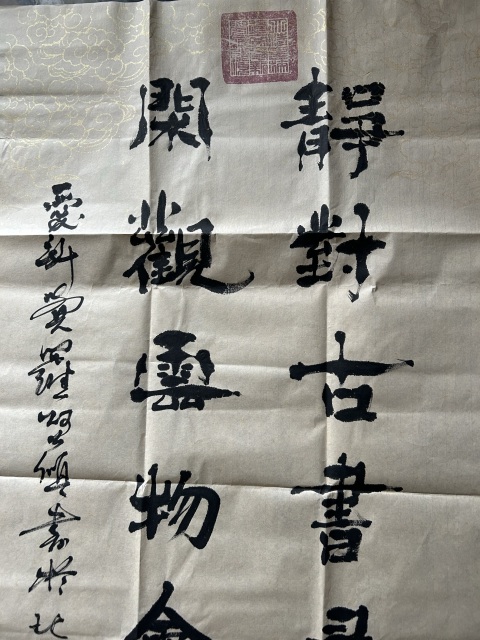 靜對古書
閑觀雲物會
愛新覺羅 書於北